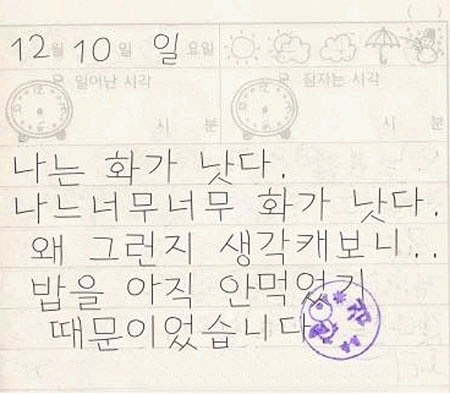 12월 10일 일요일
일어난 시각 잠자는 시각
시 분 시 분
나는 화가 낫다.
나느너무너무 화가 낫다.
왜 그런지 생각캐보니..
밥을 아직 안먹었기
때문이었습니다.